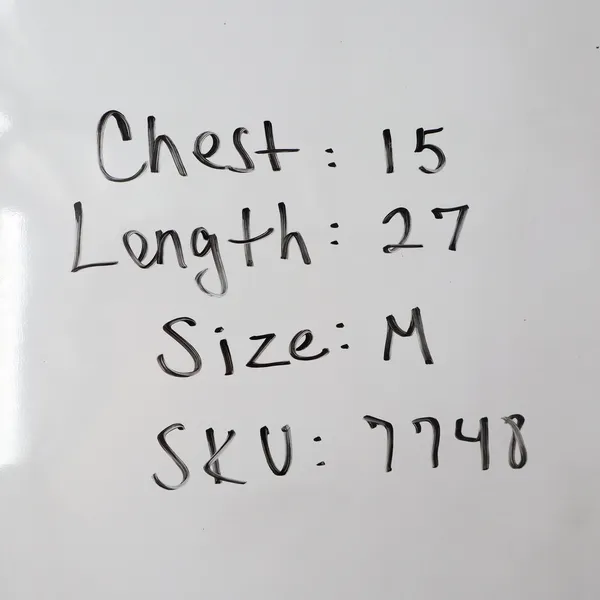 Chest: 15
Length: 27
Size: M
SKU: 7748